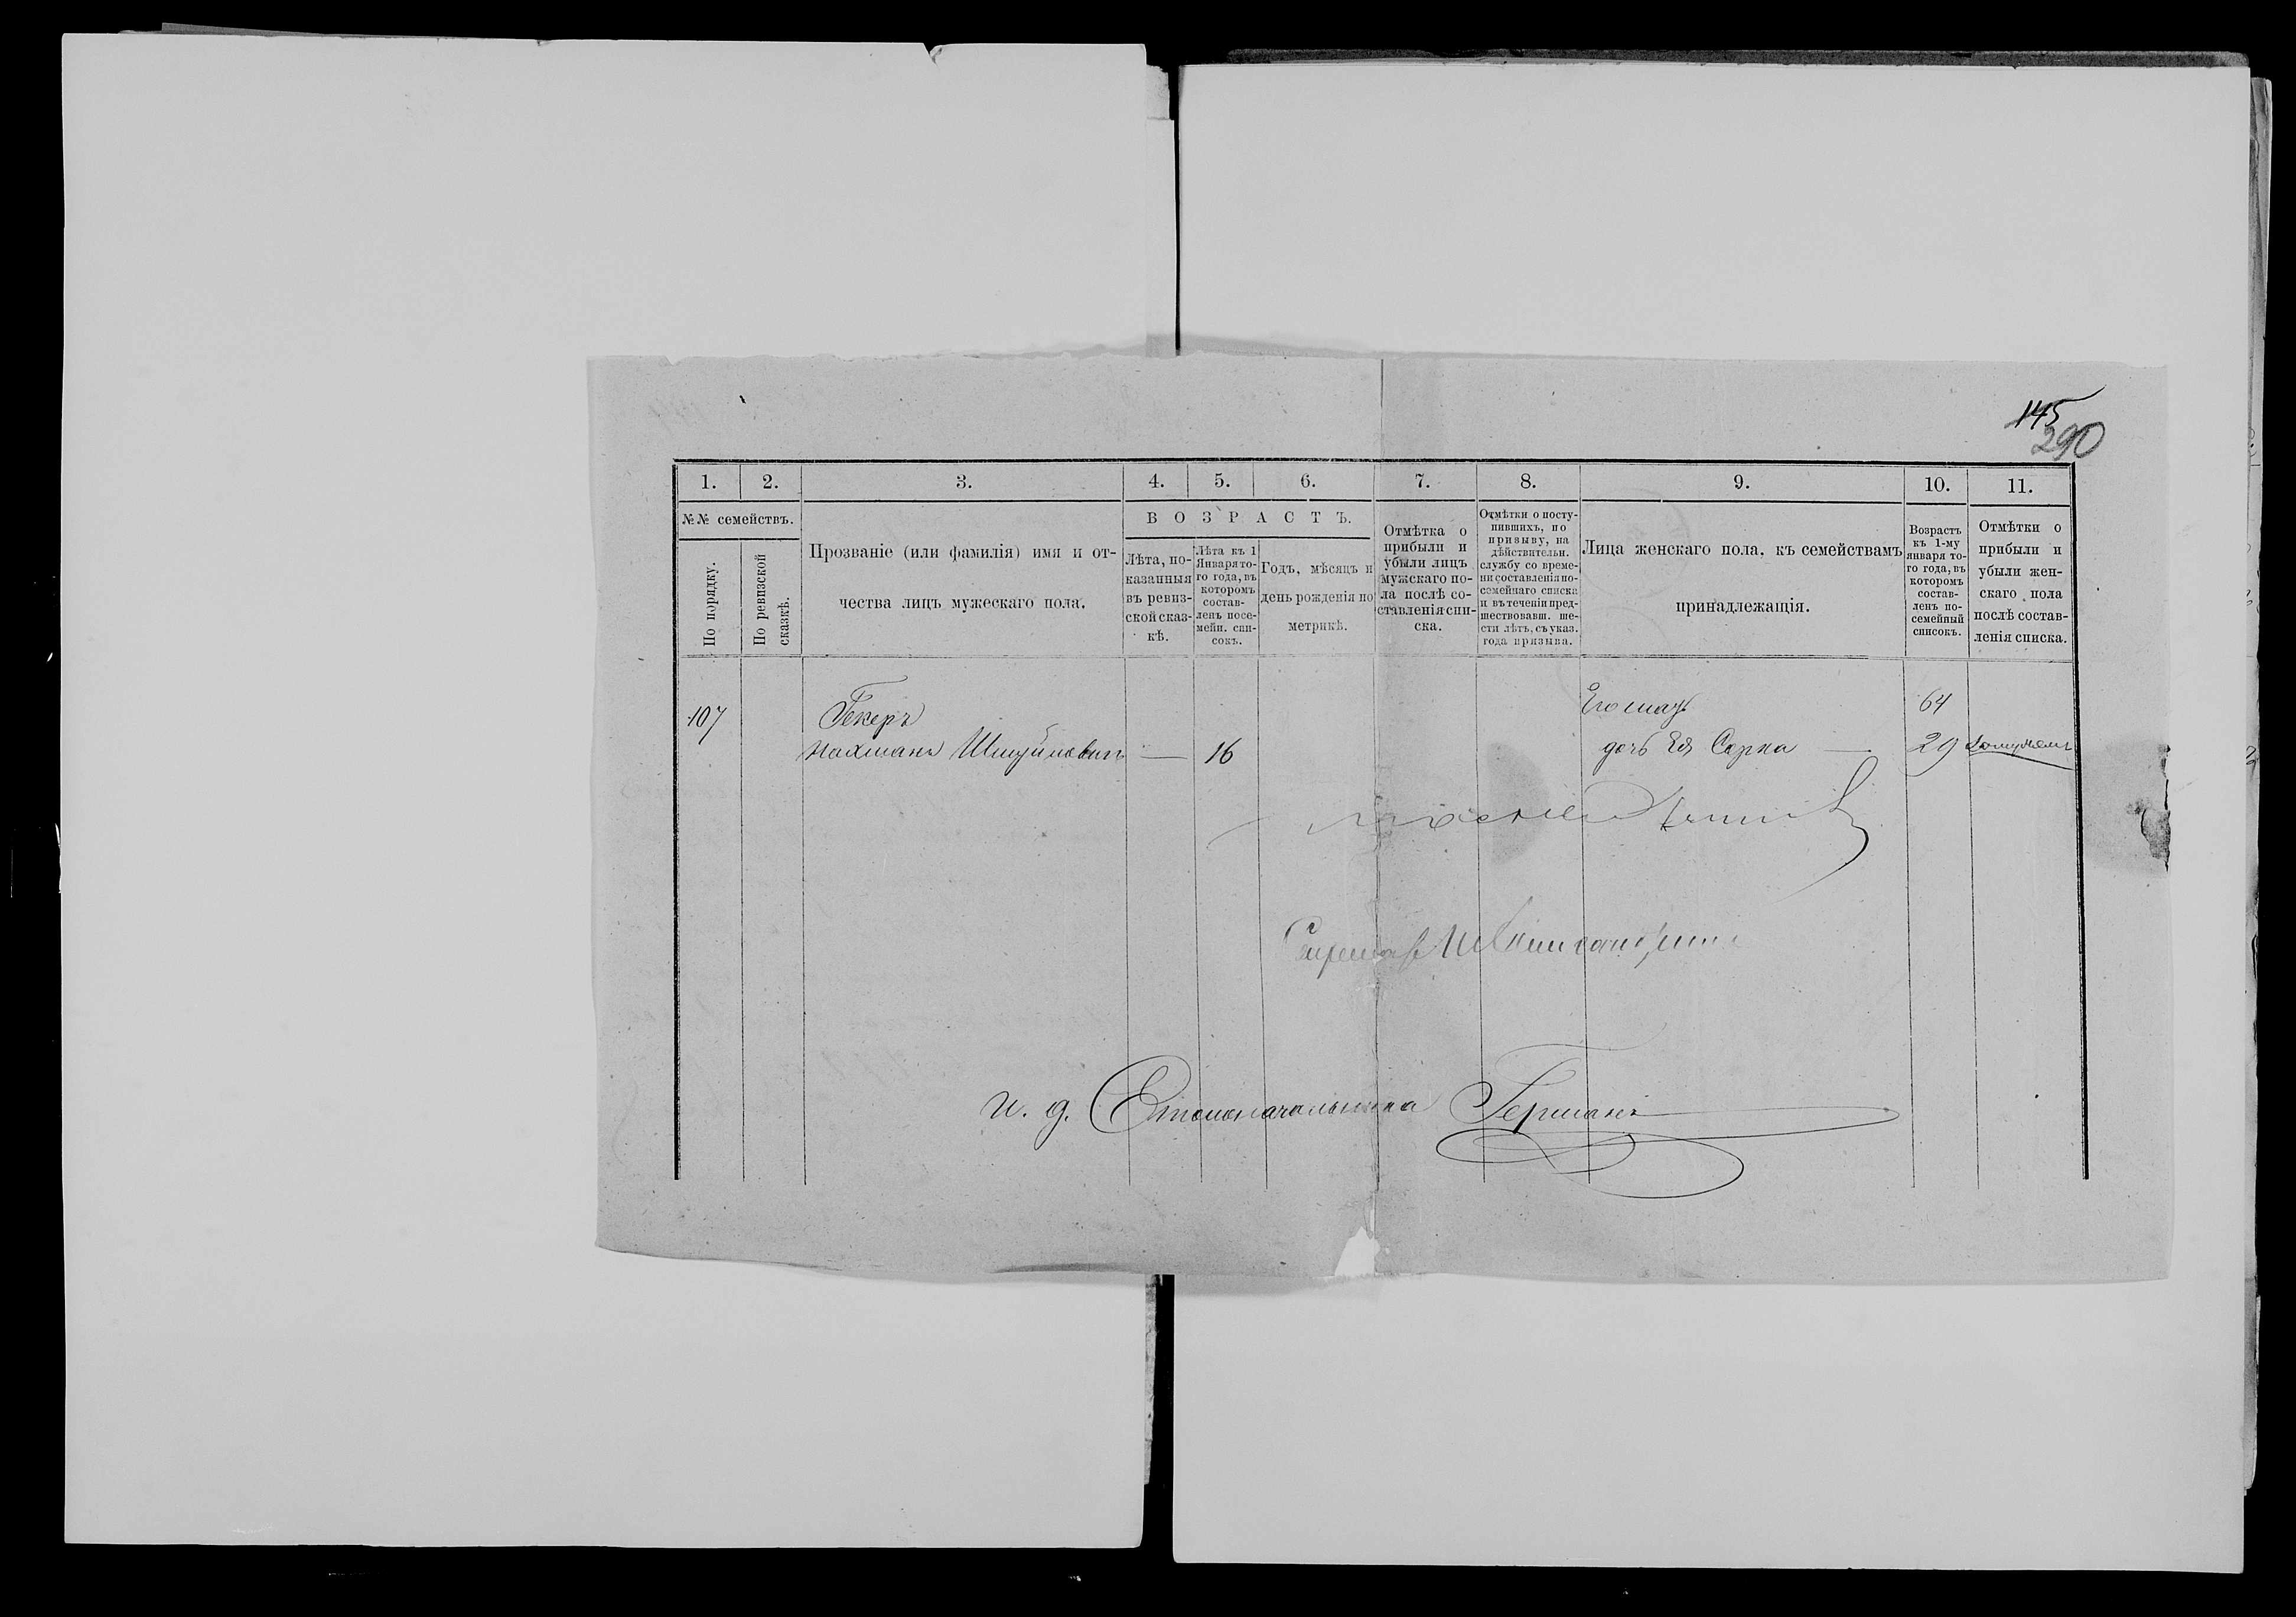 145
290
1. 2. 3. 4. 5. 6. 7. 8. 9. 10. 11.
№№ семействъ.
По порядку.
По ревизской
сказкѣ.
Прозваніе (или фамилія) имя и от-
чества лицъ мужескаго пола.
ВОЗРАСТЪ.
Лѣта, по-
казанныя
въ ревиз-
ской сказ-
кѣ.
Лѣта къ 1
Января то-
го года, въ
которомъ
состав-
ленъ посе-
мейн. спи-
сокъ.
Годъ, мѣсяцъ и
день рожденія по
метрикѣ.
Отмѣтка о
прибыли и
убыли лицъ
мужскаго по-
ла послѣ со-
ставленія спи-
ска.
Отмѣтки о посту-
пившихъ, по
призыву, на
дѣйствительн.
службу со време-
ни составленія по-
семейнаго списка
и въ теченіи пред-
шествовавш. ше-
сти лѣтъ, съ указ.
года призыва.
Лица женскаго пола, къ семействамъ
принадлежащія.
Возрастъ
къ 1-му
января то-
го года, въ
которомъ
состав-
ленъ по-
семейный
списокъ.
Отмѣтки о
прибыли и
убыли жен-
скаго пола
послѣ состав-
ленія списка.
107 Гекеръ Его мать 64
Нахманъ Шмуйловичъ — 16 дочь Ея Сорка — 29 Замужемъ
И. д. Столоначальника Германъ